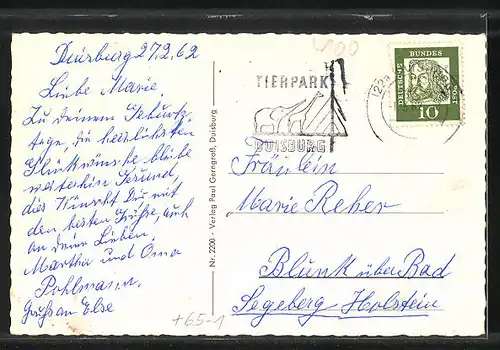 Duisburg 27.2.62
Liebe Marie.
Zu deinem Geburts-
tage, die herzlichsten
Glückwünsche bleibe
weiterhin Gesund,
dies Wünscht Dir mit
den besten Grüße, auch
an deine Lieben,
Martha und Oma
Pohlmann.
Gruß an Else
Nr. 2200 · Verlag Paul Gerngroß, Duisburg
TIERPARK
DUISBURG
DEUTSCHE
BUNDES
POST
10
Fräulein
Marie Reher
Blunk über Bad
Segeberg-Holstein
+65-1